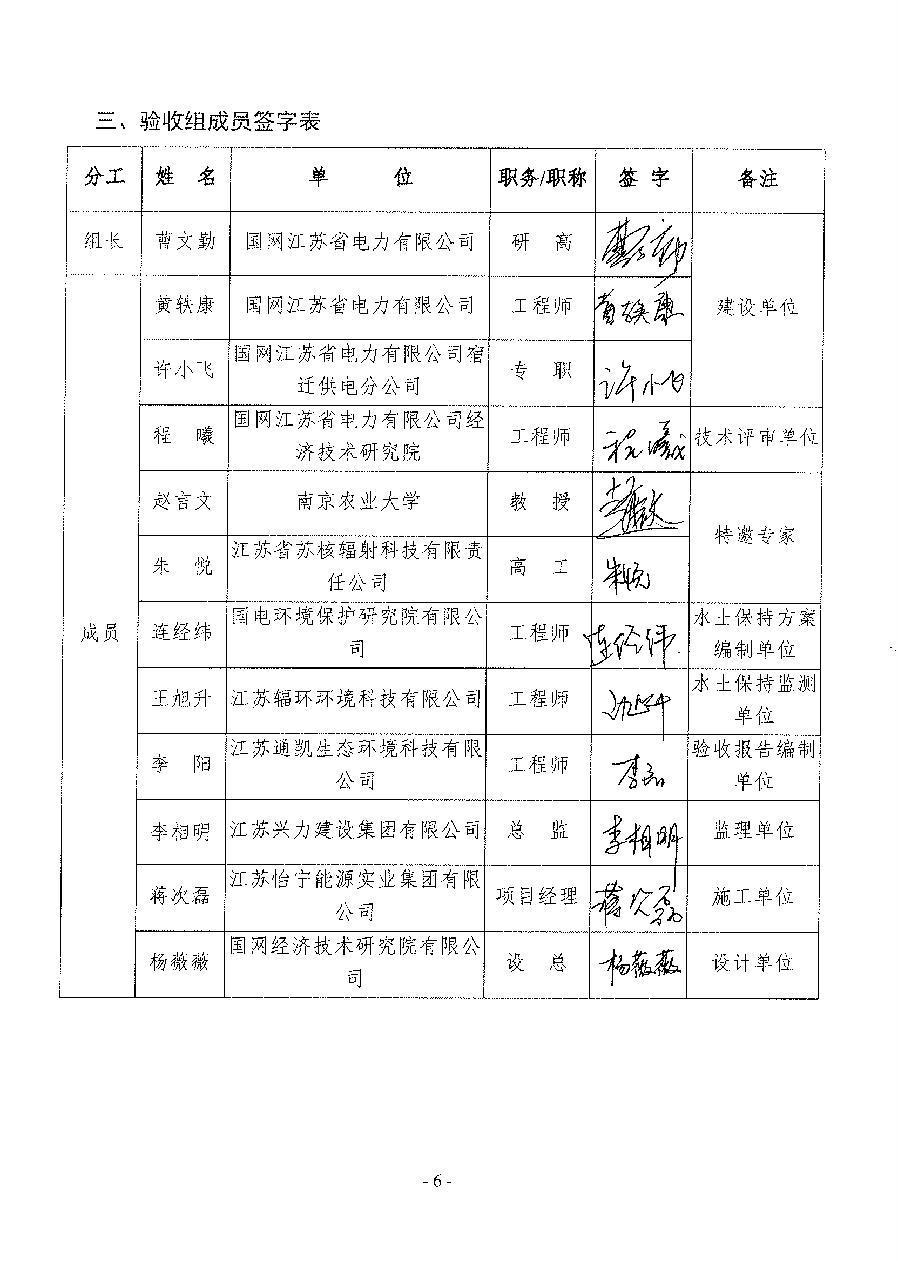 三、验收组成员签字表
分工 姓 名 单 位 职务/职称 签 字 备注
组长 曹文勤 国网江苏省电力有限公司 研 高
黄轶康 国网江苏省电力有限公司 工程师 黄轶康 建设单位
许小飞 国网江苏省电力有限公司宿
迁供电分公司 专 职 许小飞
程 曦 国网江苏省电力有限公司经
济技术研究院 工程师 程曦 技术评审单位
赵言文 南京农业大学 教 授
特邀专家
朱 悦 江苏省苏核辐射科技有限责
任公司 高 工 朱悦
成员 连经纬 国电环境保护研究院有限公
司 工程师 连经纬 水土保持方案
编制单位
王旭升 江苏辐环环境科技有限公司 工程师 水土保持监测
单位
李 阳 江苏通凯生态环境科技有限
公司 工程师 李阳 验收报告编制
单位
李相明 江苏兴力建设集团有限公司 总 监 李相明 监理单位
蒋次磊 江苏怡宁能源实业集团有限
公司 项目经理 蒋次磊 施工单位
杨薇薇 国网经济技术研究院有限公
司 设 总 杨薇薇 设计单位
- 6 -